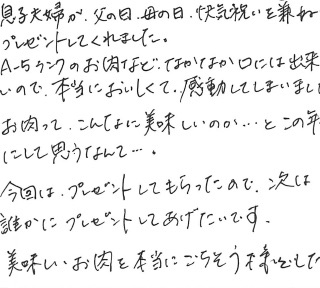 息子夫婦が、父の日、母の日、快気祝いを兼ね
プレゼントしてくれました。
A-5ランクのお肉など、なかなか口には出来
いので、本当においしくて、感動してしまいまし
お肉って、こんなに美味しいのか…とこの年
にして思うなんて…。
今回は、プレゼントしてもらったので、次は
誰かにプレゼントしてあげたいです。
美味しいお肉を本当にごちそう様でした